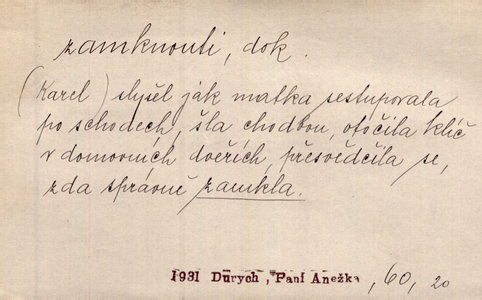 zamknouti, dok.
(Karel) slyšel jak matka sestupovala
po schodech, šla chodbou, otočila klíč
v domovních dveřích, přesvědčila se,
zda správně zamkla.
1931 Durych, Paní Anežka, 60, 20